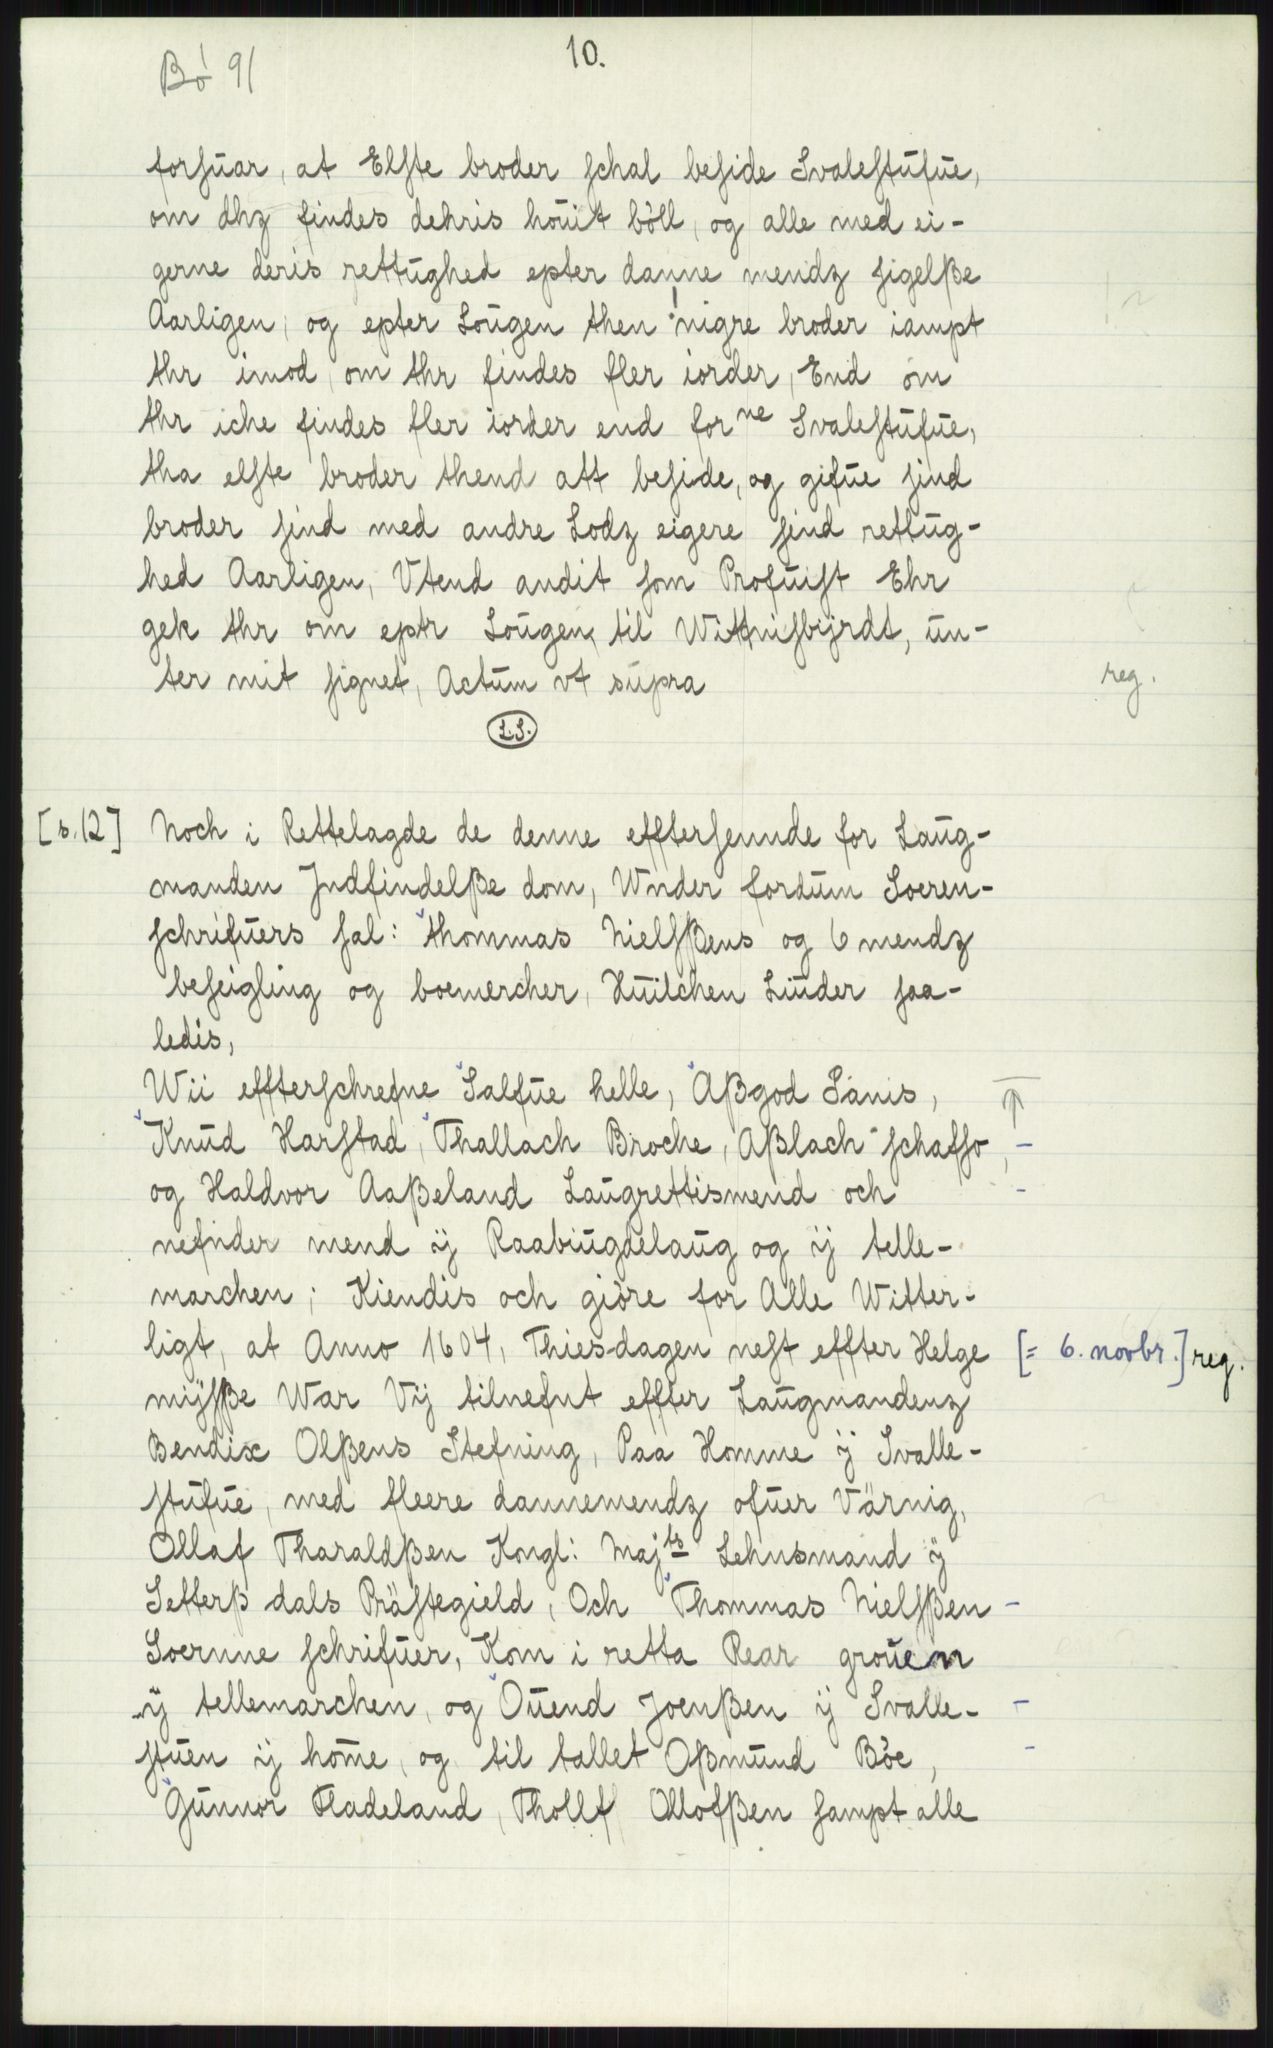 Bö 91
10.
forsuar, at Elste broder schal beside Svalestufue,
om dhz findes dehris houit böll, og alle med ei-
gerne deris rettughed epter danne mendz sigelße
Aarligen, og epter Lougen then ! nigre broder iampt
thr imod, om thr findes fler iorder, End om
thr iche findes fler iorder end forne Svalestufue,
tha elste broder thend att beside, og gifue sind
broder sind med andre Lodz eigere sind rettug-
hed Aarligen, Vtend andit som Profuist Ehr
gek thr om eptr Lougen, til Wittnisbyrdt, un-
ter mit signet, Actum vt supra
reg.
L.S.
[s.12] Noch i Rettelagde de denne effterseunde for Laug-
manden Jndfindelße dom, Wnder fordum Soeren-
schrifuers sal: Thommas Nielsßens og 6 mendz
beseigling og boemercher, Huilchen Liuder saa-
ledis,
Wii effterschrefne Salfue helle, Aßgod Sanis,
Knud Harstad, Thallach Broche, Aßlach schafso,
og Haldvor Aaßeland Laugrettismend och
nefnder mend ij Raabiugdelaug og ij telle-
marchen; Kiendis och giöre for Alle Witter-
ligt, at Anno 1604, Thiesdagen nest effter Helge [= 6. novbr.] reg.
mijsße War Vij tilnefnt effter Laugmandenz
Bendix Olßens Stefning, Paa Homme ij Svalle-
stufue, med fleere dannemendz ofuer Värnig,
Ollaf Tharaldßen Kongl: Majts Lehnsmand ij
Setterß dals Prästegield, Och Thommas Nielsßen
Soernne schrifuer, Kom i retta Rear grouem
ij tellemarchen, og Ouend Joenßen ij Svalle-
stuen ij home, og til tallet Oßmund Böe,
Gunnor Fladeland, Thollf Ollofßen sampt alle